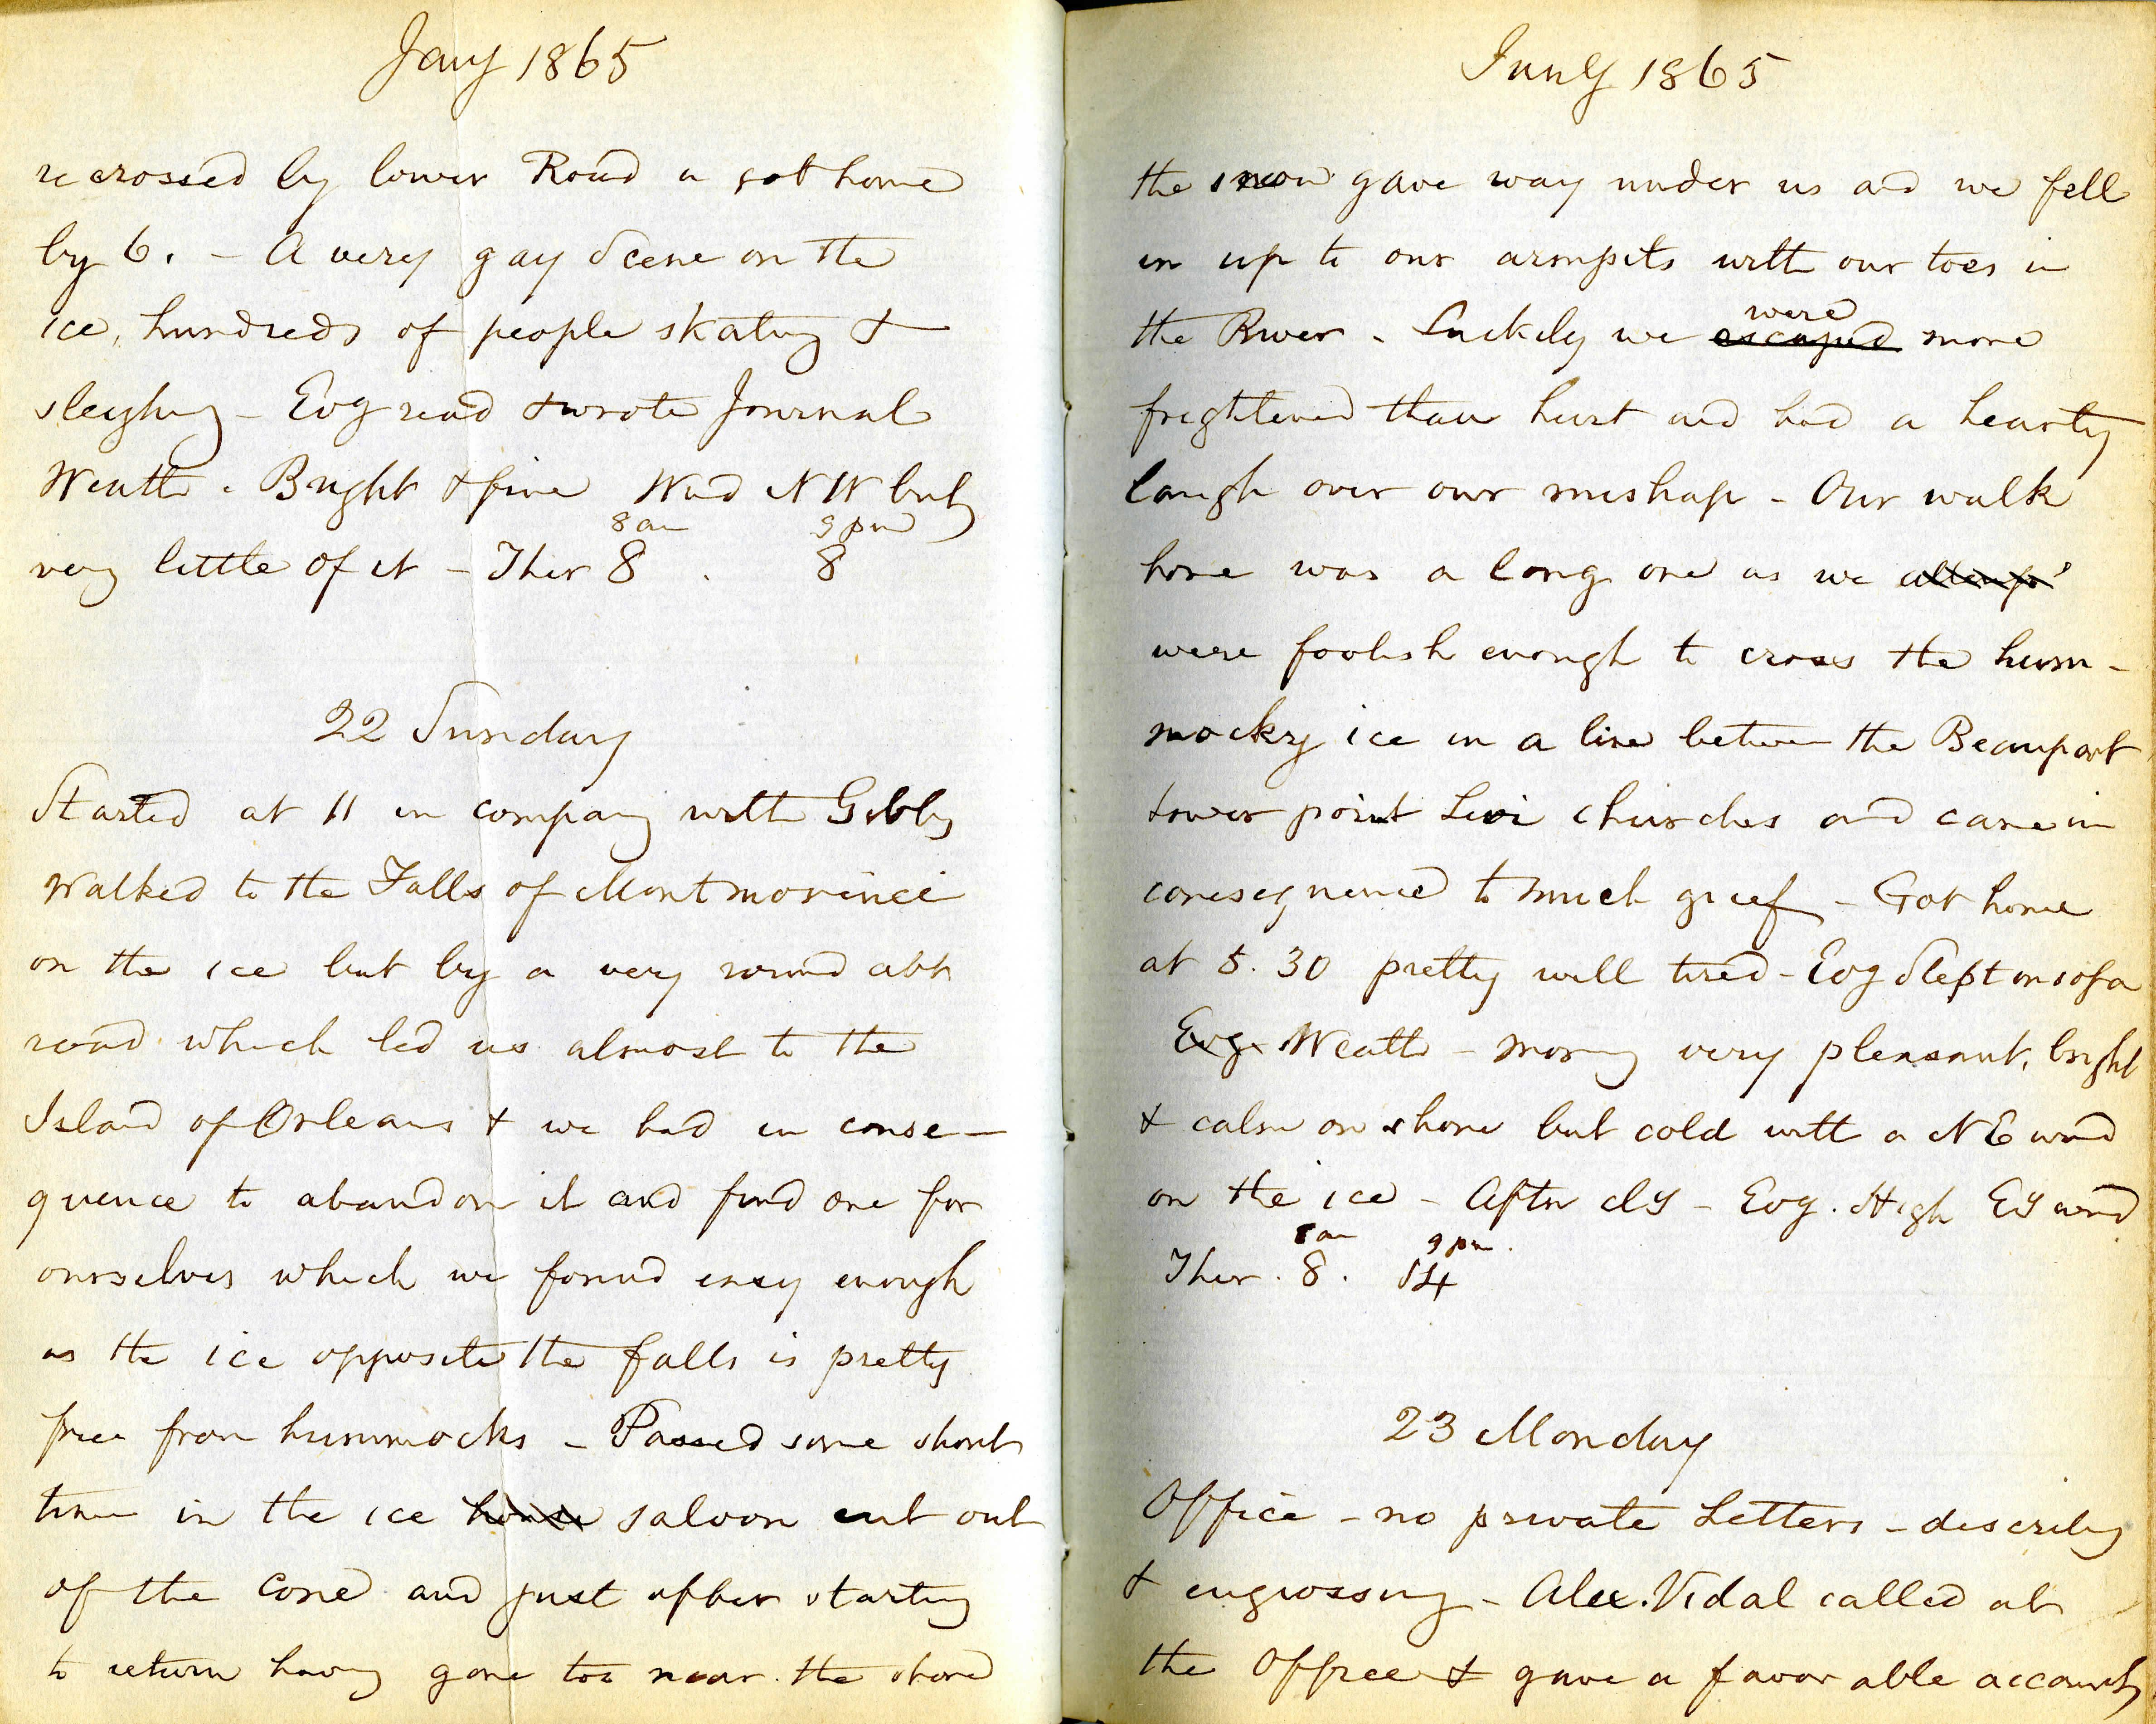 Jany 1865
recrossed by lower Road & got home
by 6. - A very gay Scene on the
ice, hundreds of people skating &
sleighing - Evg read & wrote Journal
Weathr. Bright & fine Wind NW but
8 am 9 pm
very little of it - Ther 8 . 8
22 Sunday
Started at 11 in company with Gibby
Walked to the Falls of Montmorinci
on the ice but by a very round abt
road which led us almost to the
Island of Orleans & we had in conse-
quence to abandon it and find one for
ourselves which we found easy enough
as the ice opposite the falls is pretty
free from hummocks - Passed some short
time in the ice house saloon cut out
of the Cone and just after starting
to return having gone too near the shore
Jany 1865
the snow gave way under us and we fell
in up to our armpits with our toes in
were
the River. Luckily we escaped more
frightened than hurt and had a hearty
laugh over our mishap - Our walk
home was a long one as we attempd
were foolish enough to cross the hum-
mocky ice in a line between the Beauport
lower point Levi churches and came in
consequence to much grief - Got home
at 5.30 pretty well tired - Evg Slept on sofa
Evg. Weathr - morng very pleasant, bright
& calm on shore but cold with a NE wind
on the ice - Aftn dy - Evg. High Ey wind
8 am 9 pm.
Ther. 8. 14
23 Monday
Office - no private Letters - describing
& engrossing - Alex. Vidal called at
the Office & gave a favorable account